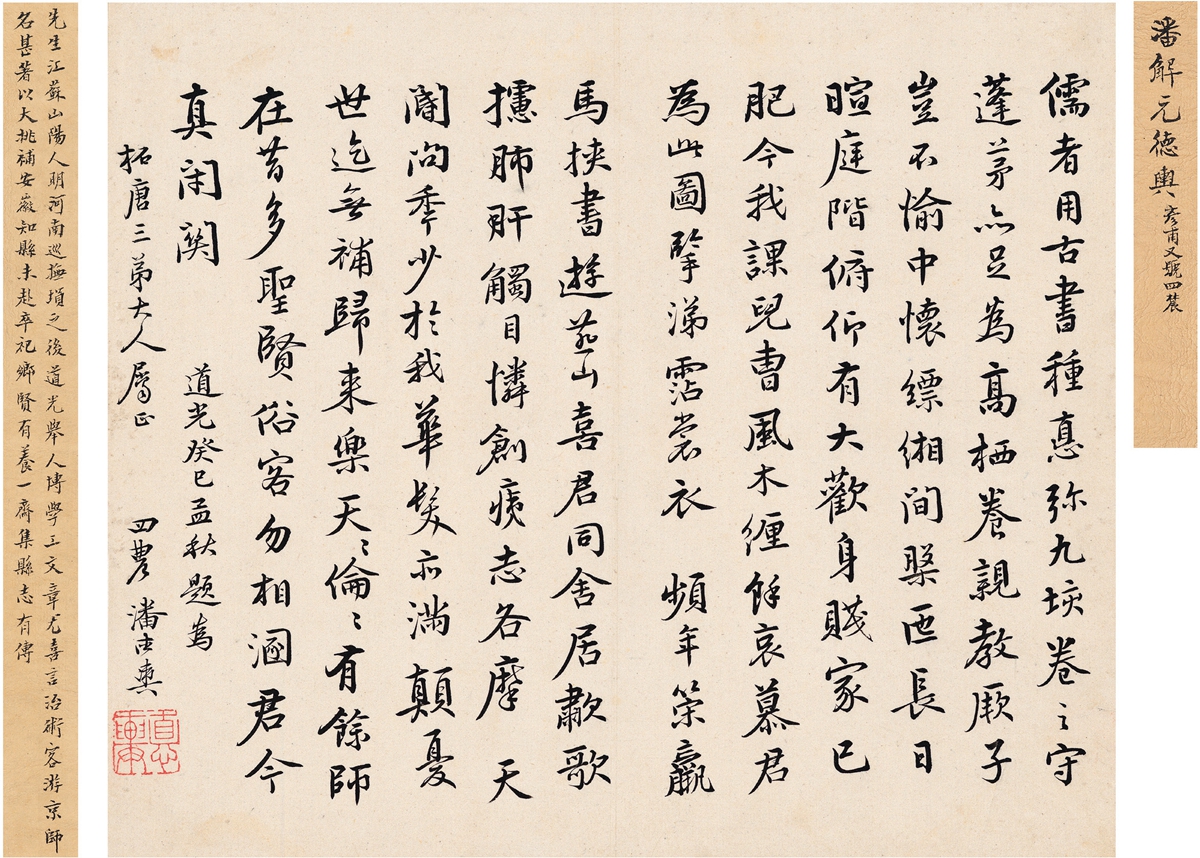 潘解元德輿 彥甫又號四農
儒者用古書種意弥九垓卷之守
蓬茅亦足為高栖養親教厥子
豈不愉中懷縹緗間槩函長日
暄庭階俯仰有大歡身賤家已
肥今我課兒曹風木纏餘哀慕君
為此圖擥涕霑裳衣 頻年策羸
馬挾書遊燕山喜君同舍居歗歌
攄肺肝觸目憐創痍志各摩天
閽尚季少於我華髮亦滿顛憂
世迄無補歸来樂天〻倫〻有餘師
在昔多聖賢俗客勿相溷君今
真閉關 道光癸巳孟秋題為
柘唐三弟大人屬正 四農潘德輿
先生江蘇山陽人明河南巡撫塤之後道光舉人博學工文章尤喜言治術客游京師
名甚著以大挑補安徽知縣未赴卒祀鄉賢有養一齋集縣志有傳